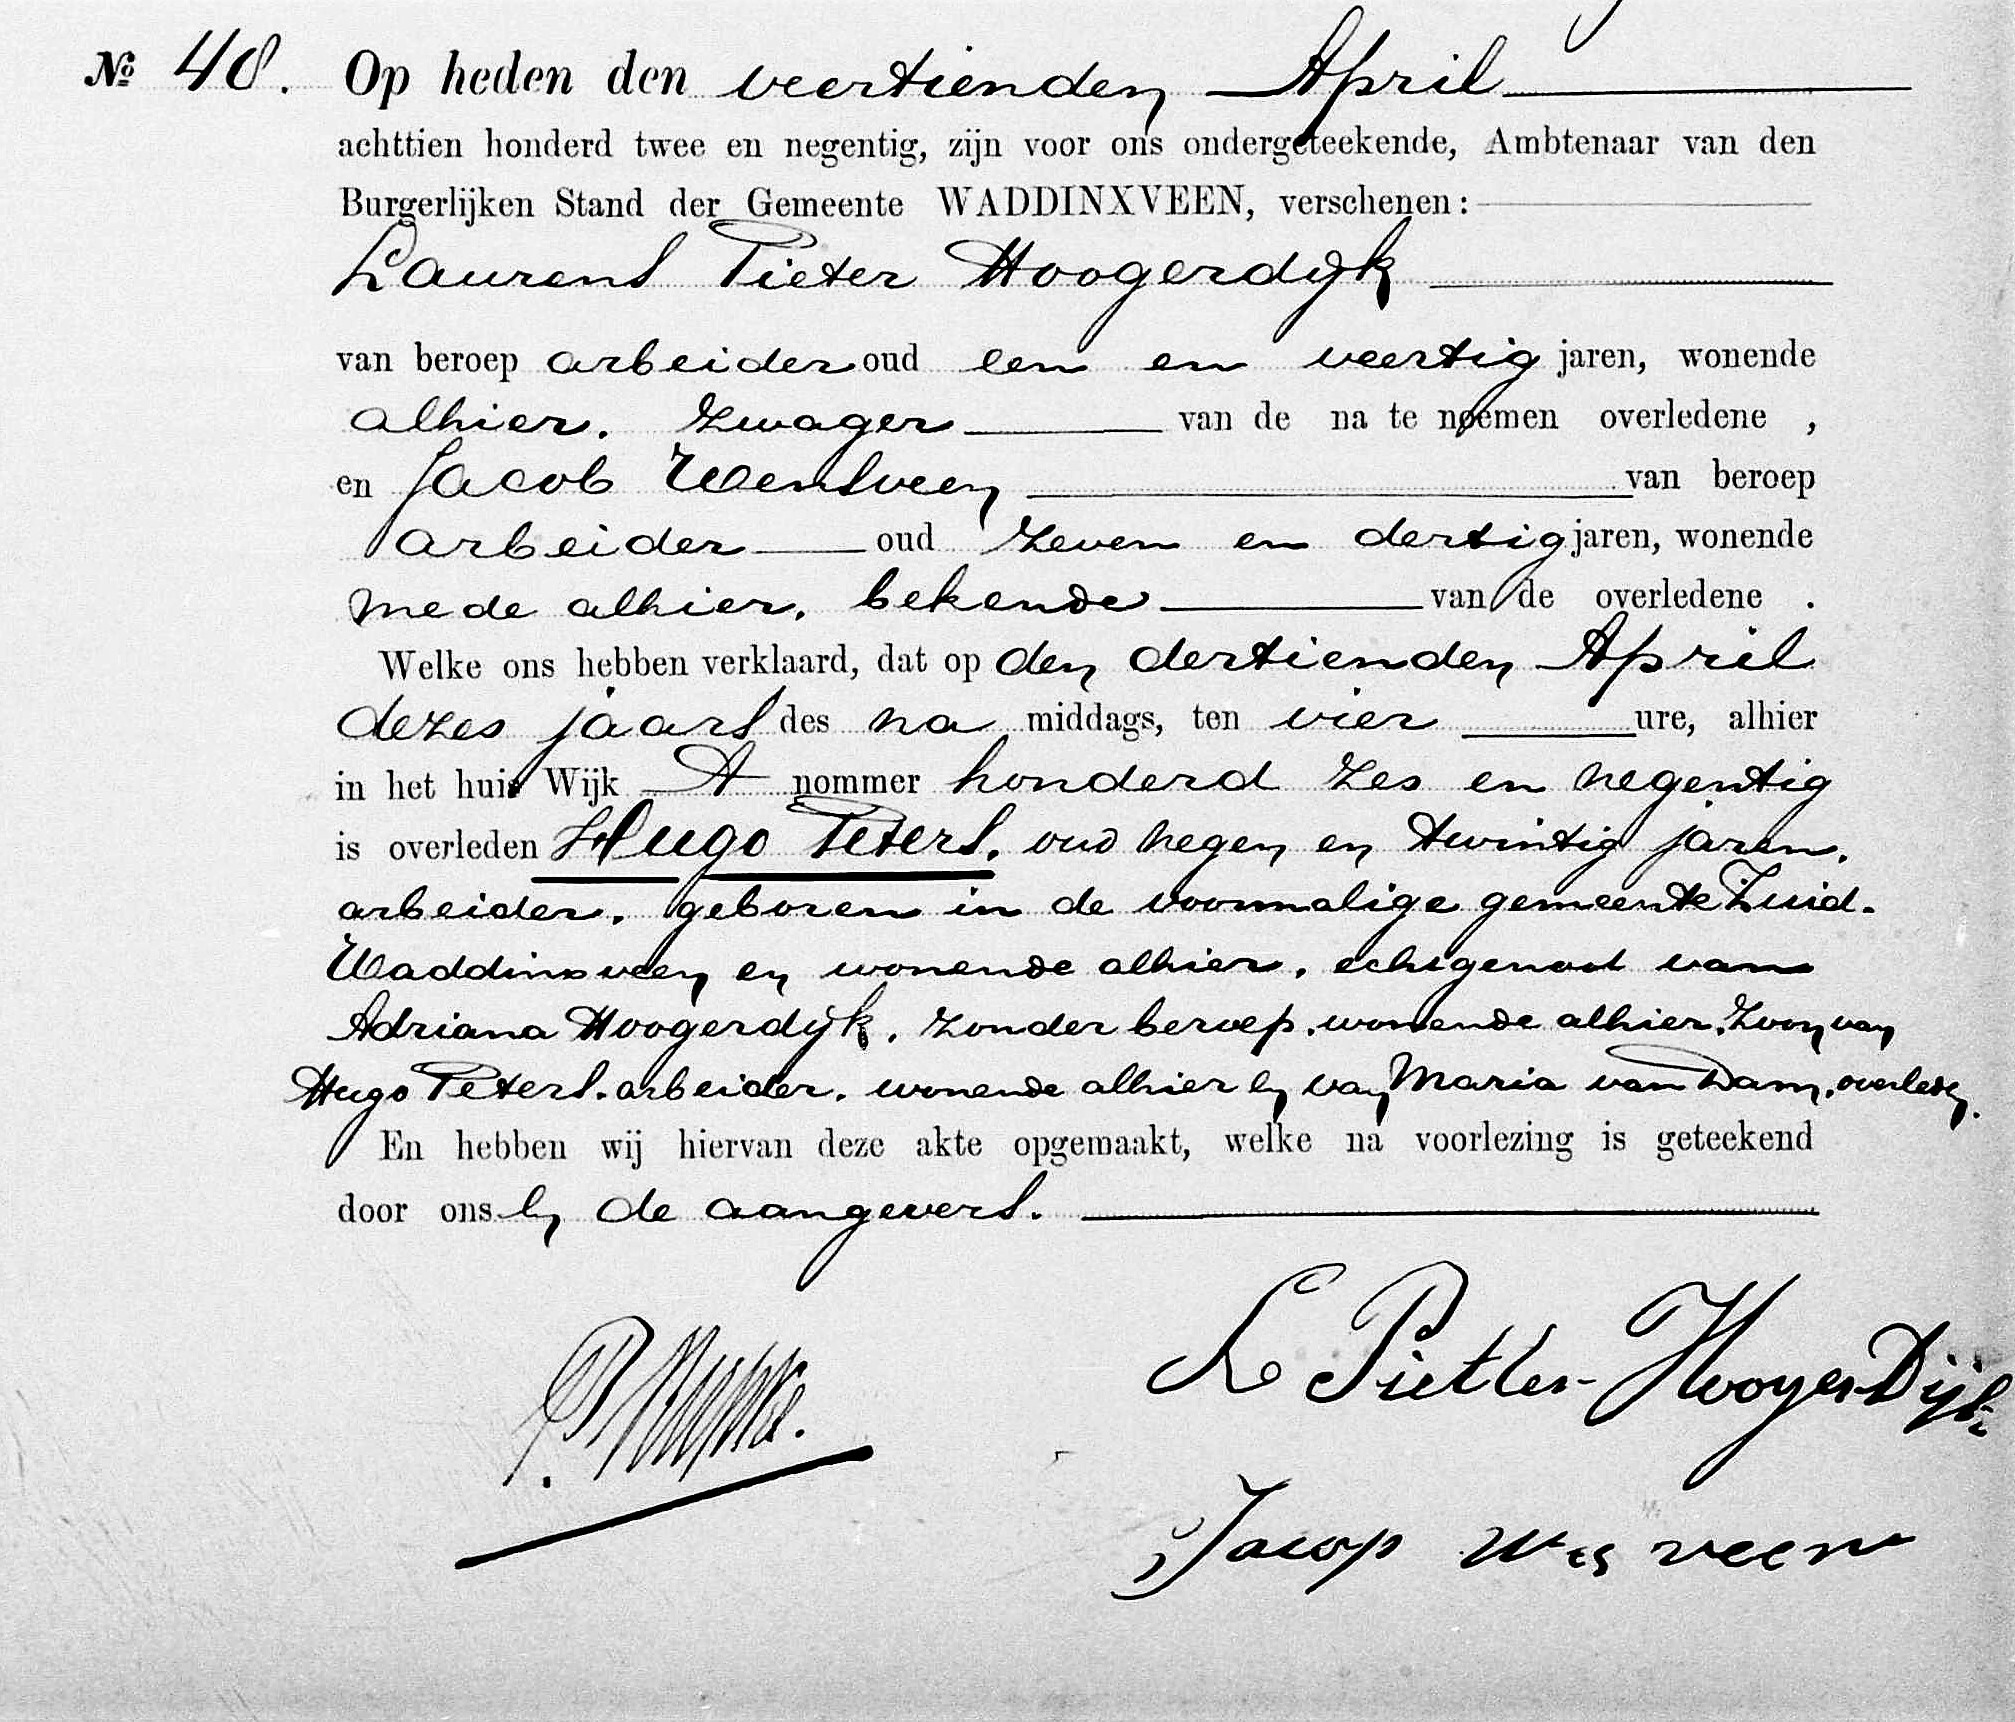 № 48. Op heden den veertienden April
achttien honderd twee en negentig, zijn voor ons ondergeteekende, Ambtenaar van den
Burgerlijken Stand der Gemeente WADDINXVEEN, verschenen:
Laurens Pieter Hoogerdijk
van beroep arbeider oud een en veertig jaren, wonende
alhier, zwager van de na te noemen overledene ,
en Jacob Wensveen van beroep
arbeider oud zeven en dertig jaren, wonende
mede alhier, bekende van de overledene .
Welke ons hebben verklaard, dat op den dertienden April
dezes jaars des na middags, ten vier ure, alhier
in het huis Wijk A nommer honderd zes en negentig
is overleden Hugo Peters, oud negen en twintig jaren,
arbeider, geboren in de voormalige gemeente Zuid-
Waddinxveen en wonende alhier, echtgenoot van
Adriana Hoogerdijk, zonder beroep, wonende alhier, Zoon van
Hugo Peters, arbeider, wonende alhier en van Maria van Dam, overleden.
En hebben wij hiervan deze akte opgemaakt, welke na voorlezing is geteekend
door ons en de aangevers.
L Pietter HoogerDijk
Jacop Wesveen